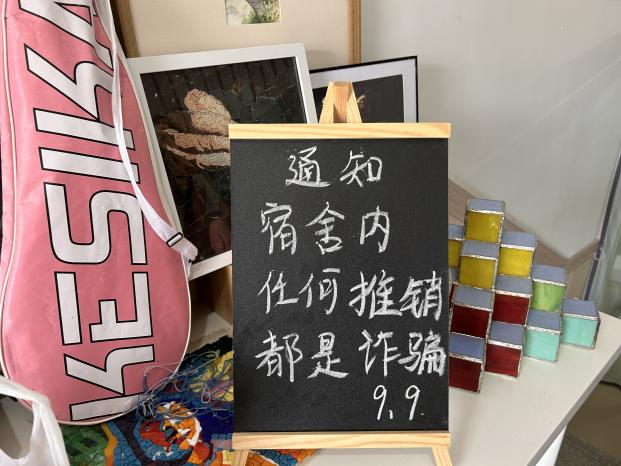 KESIKA
通知
宿舍内
任何推销
都是诈骗
9.9.